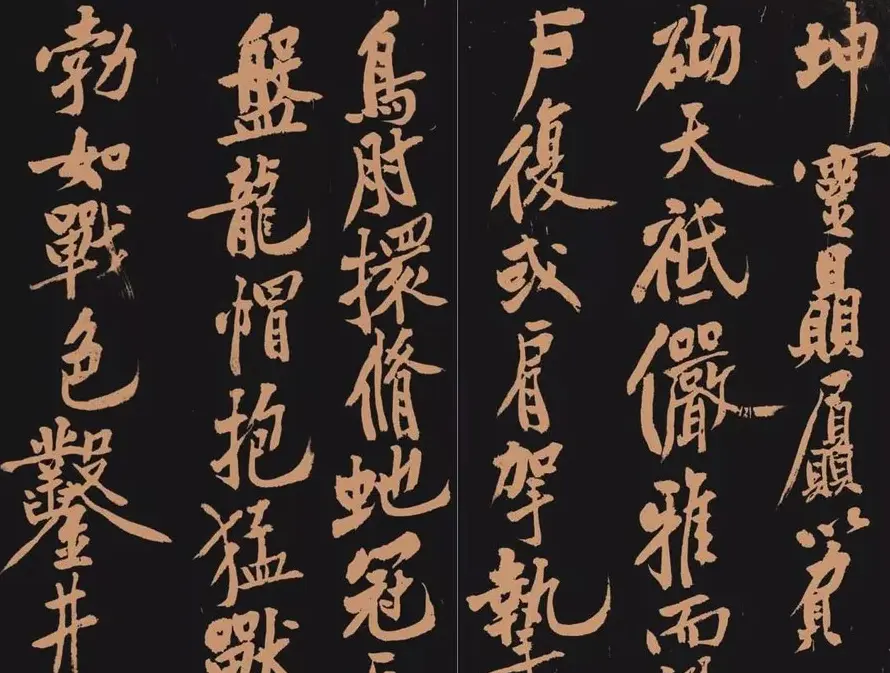 坤靈贔屭以負
砌天祇儼雅而
戶復或肩挐摯
鳥肘擐脩虵冠
盤龍帽抱猛獸
勃如戰色鑿井